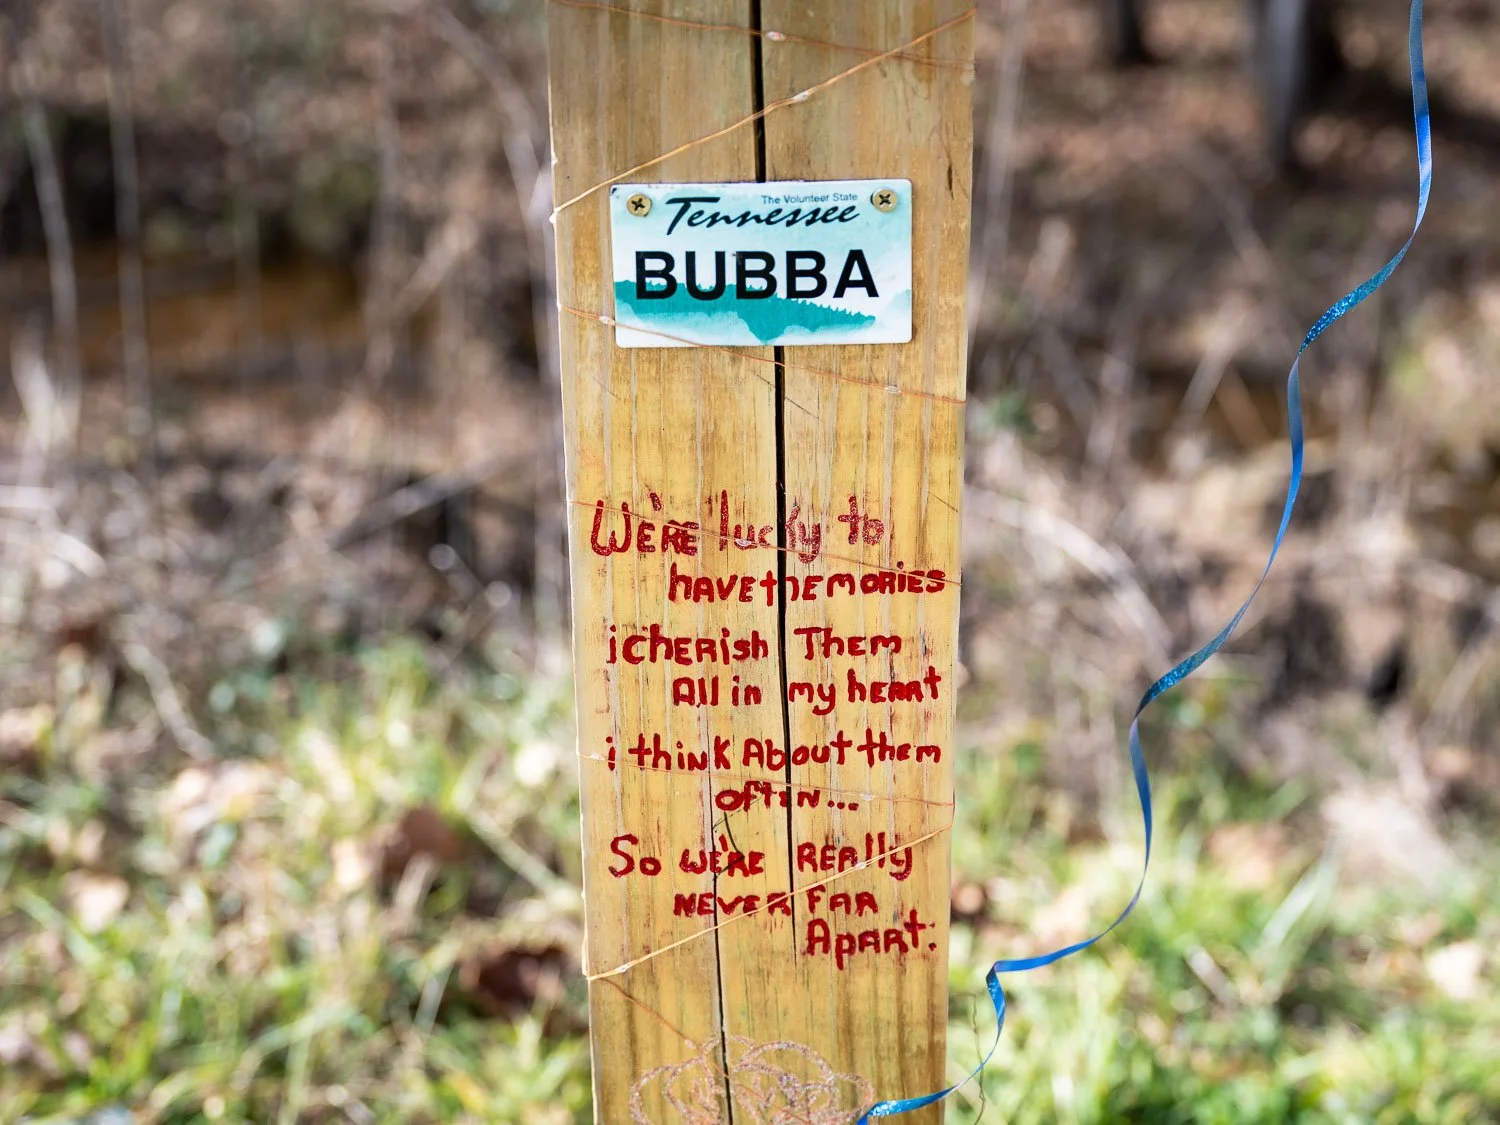 The Volunteer State
Tennessee
BUBBA
We're lucky to
have the memories
i cherish Them
All in my heart
i think About them
often...
So we're Really
never far
Apart.